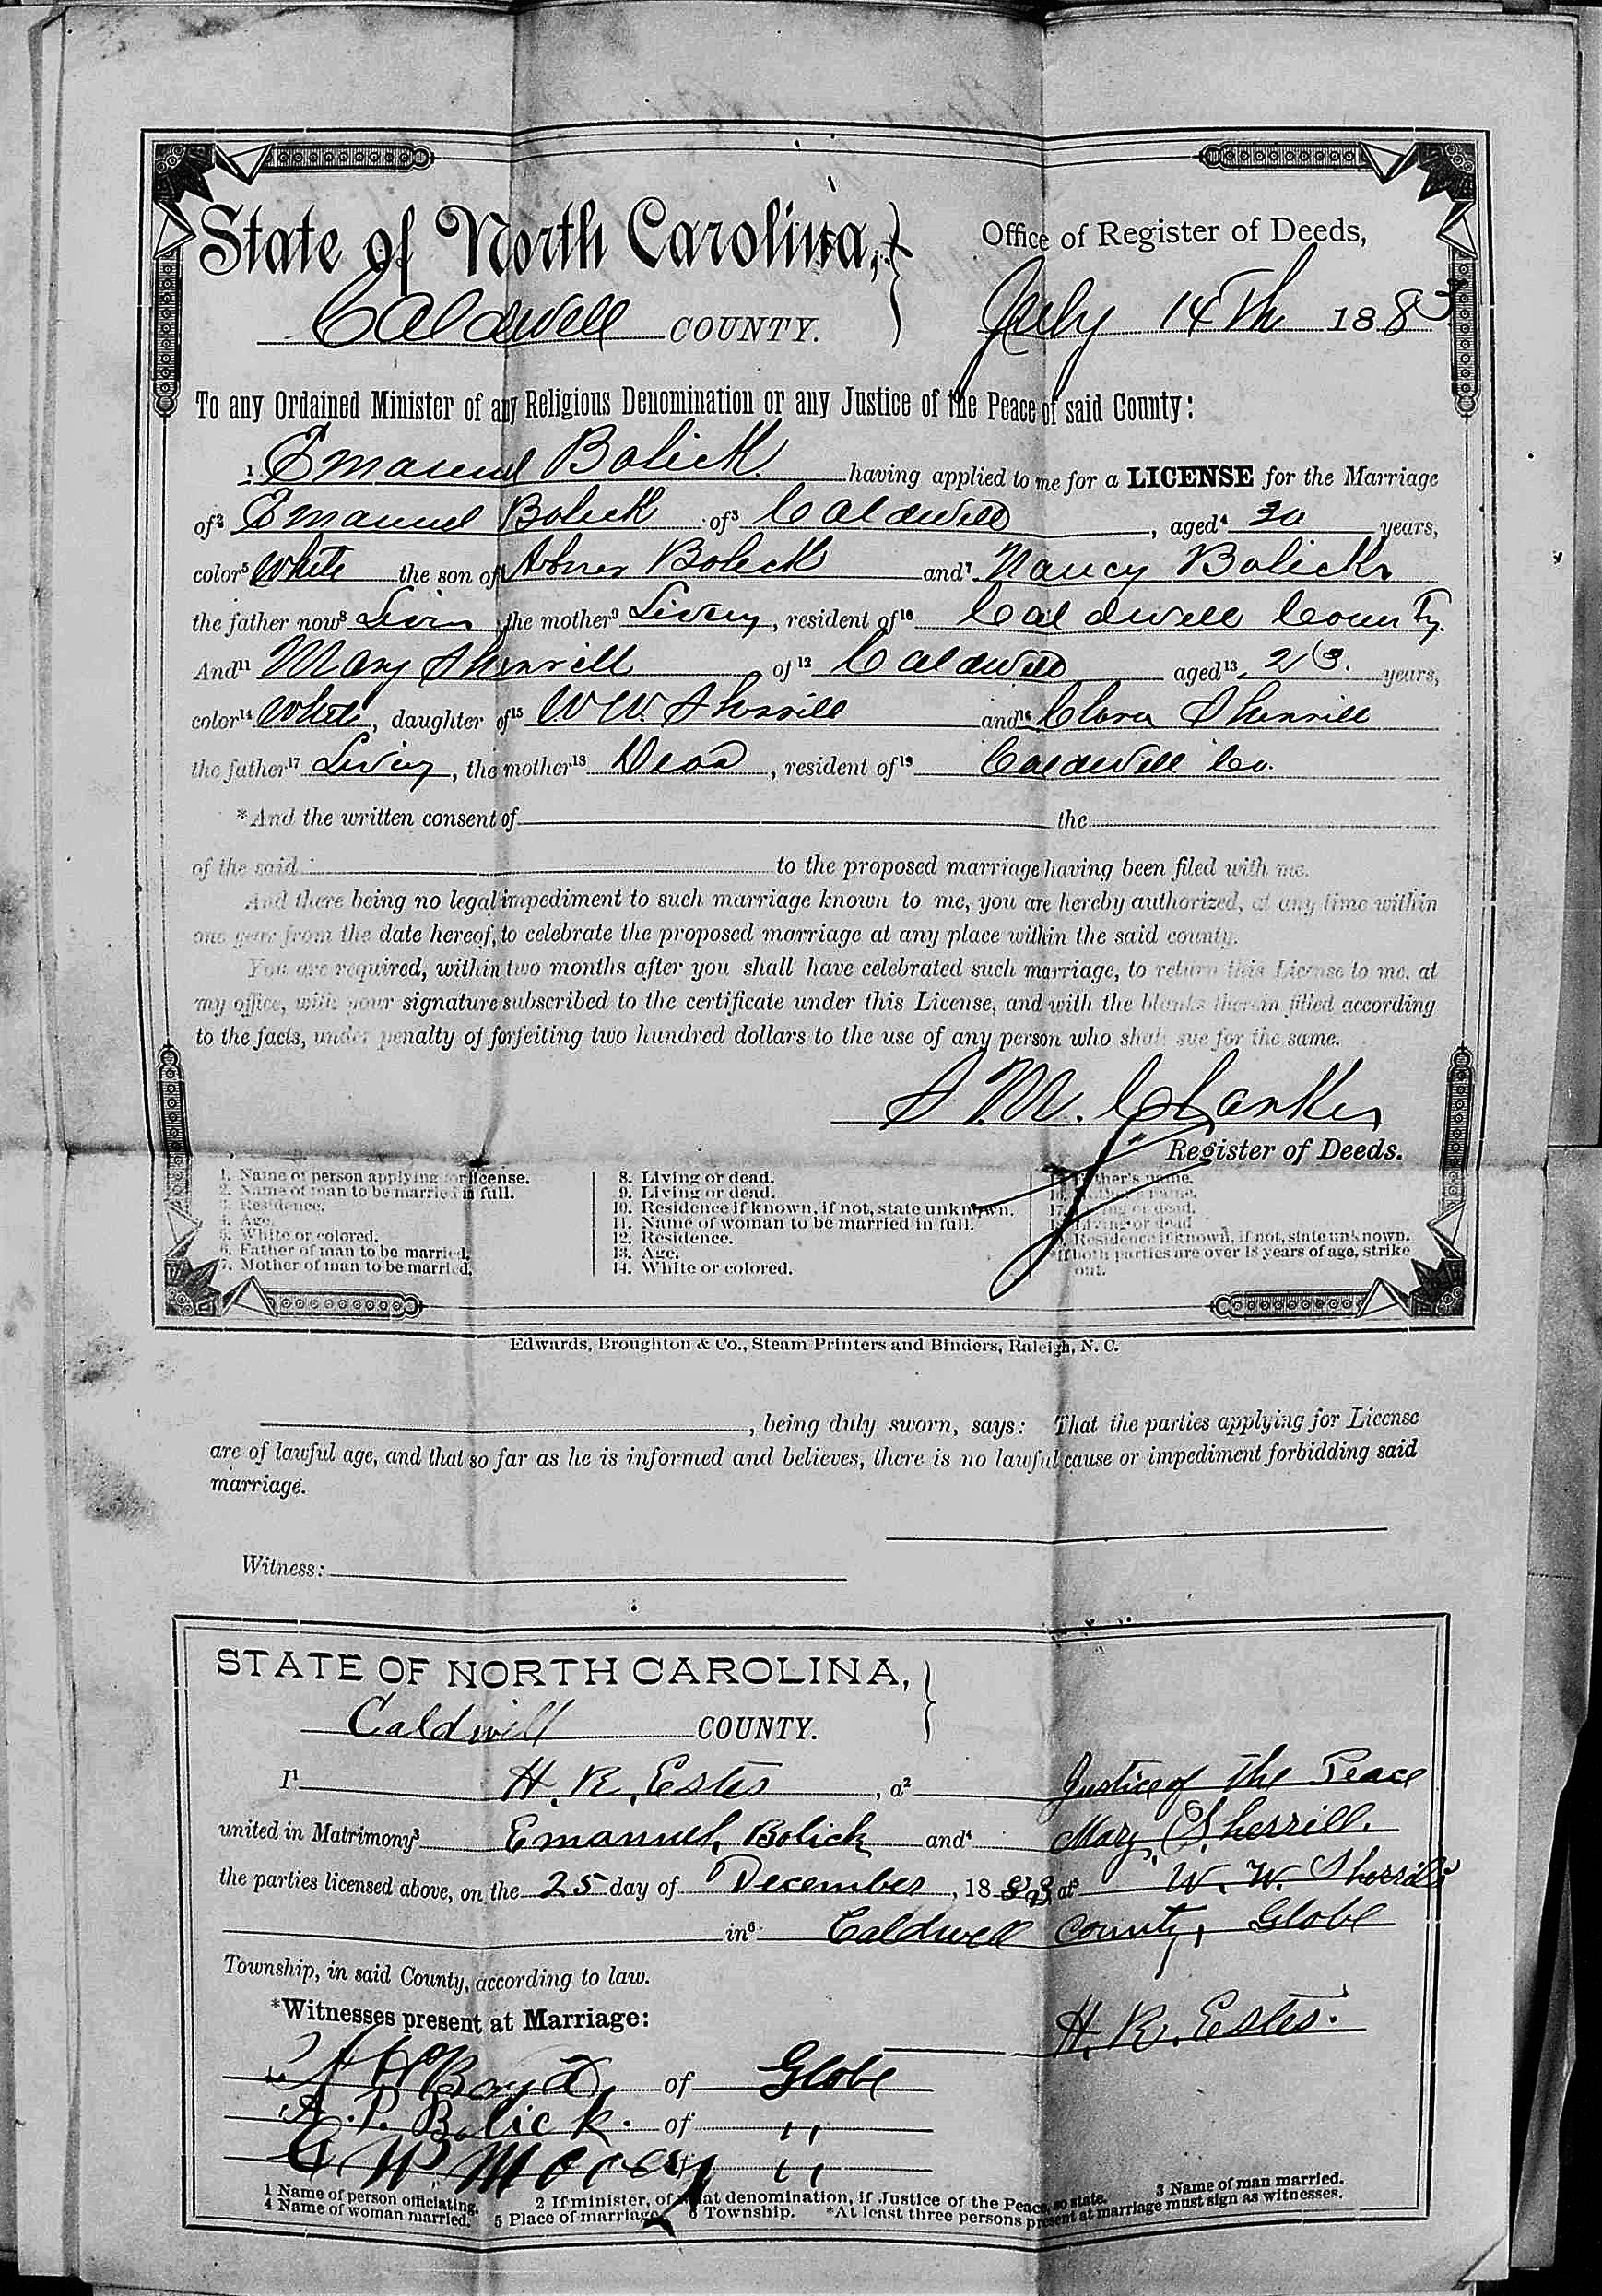 State of North Carolina, Office of Register of Deeds,
Caldwell COUNTY. July 14Th 1883
To any Ordained Minister of any Religious Denomination or any Justice of the Peace of said County:
1 Emanuel Bolick having applied to me for a LICENSE for the Marriage
of2 Emanuel Bolick of3 Caldwell, aged4 30 years,
color5 White the son of6 Abner Bolick and7 Nancy Bolick
the father now8 Livin, the mother9 Living, resident of10 Caldwell County.
And11 Mary Sherrill of12 Caldwell aged13 23. years,
color14 White, daughter of15 W W. Sherrill and16 Clara Sherrill
the father17 Living, the mother18 Dead, resident of19 Caldwell Co.
*And the written consent of the
of the said to the proposed marriage having been filed with me.
And there being no legal impediment to such marriage known to me, you are hereby authorized, at any time within
one year from the date hereof, to celebrate the proposed marriage at any place within the said county.
You are required, within two months after you shall have celebrated such marriage, to return this License to me, at
my office, with your signature subscribed to the certificate under this License, and with the blanks therein filled according
to the facts, under penalty of forfeiting two hundred dollars to the use of any person who shall sue for the same.
Register of Deeds.
1. Name of person applying for license.
2. Name of man to be married in full.
3. Residence.
4. Age.
5. White or colored.
6. Father of man to be married.
7. Mother of man to be married.
8. Living or dead.
9. Living or dead.
10. Residence if known, if not, state unknown.
11. Name of woman to be married in full.
12. Residence.
13. Age.
14. White or colored.
Father's name.
16. Mother's name.
17. Living or dead.
18. Living or dead
Residence if known, if not, state unknown.
*If both parties are over 18 years of age, strike
out.
Edwards, Broughton & Co., Steam Printers and Binders, Raleigh, N. C.
, being duly sworn, says: That the parties applying for License
are of lawful age, and that so far as he is informed and believes, there is no lawful cause or impediment forbidding said
marriage.
Witness:
STATE OF NORTH CAROLINA,
Caldwell COUNTY.
I1 H. R. Estes, a2 Justice of the Peace
united in Matrimony3 Emanuel Bolick and4 Mary Sherrill.
the parties licensed above, on the 25 day of December, 1883 at5 W. W. Sherrills
in6 Caldwell County, Globe
Township, in said County, according to law.
*Witnesses present at Marriage:
H. R. Estes.
Boyd of Globe
A. P. Bolick. of "
Moore of "
1 Name of person officiating. 2 If minister, of what denomination, if Justice of the Peace, so state. 3 Name of man married.
4 Name of woman married. 5 Place of marriage. 6 Township. *At least three persons present at marriage must sign as witnesses.